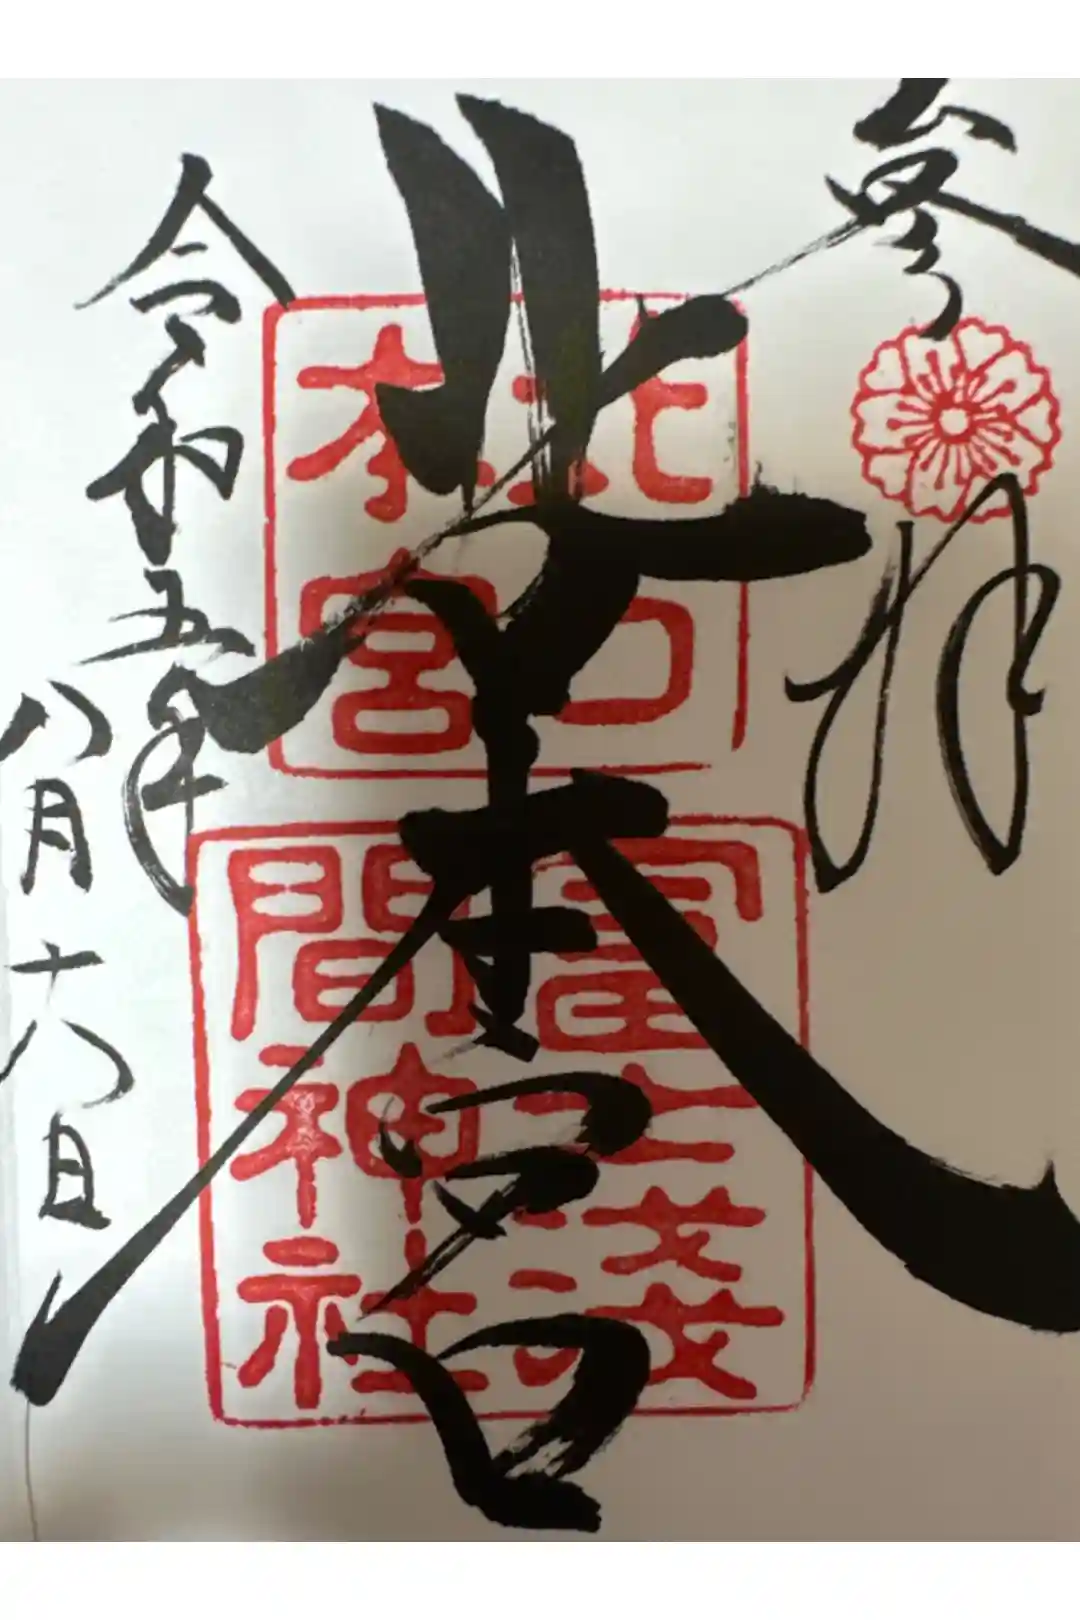 參拝
北口本宮
令和五年
八月十八日
北口
本宮
冨士淺
間神社